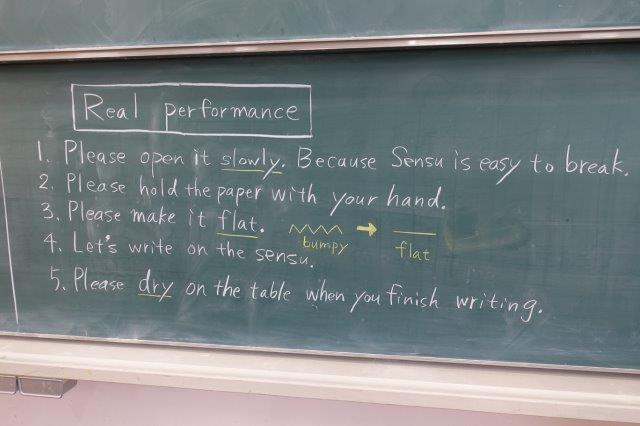 Real performance
1. Please open it slowly. Because Sensu is easy to break.
2. Please hold the paper with your hand.
3. Please make it flat.
bumpy → flat
4. Let's write on the sensu.
5. Please dry on the table when you finish writing.